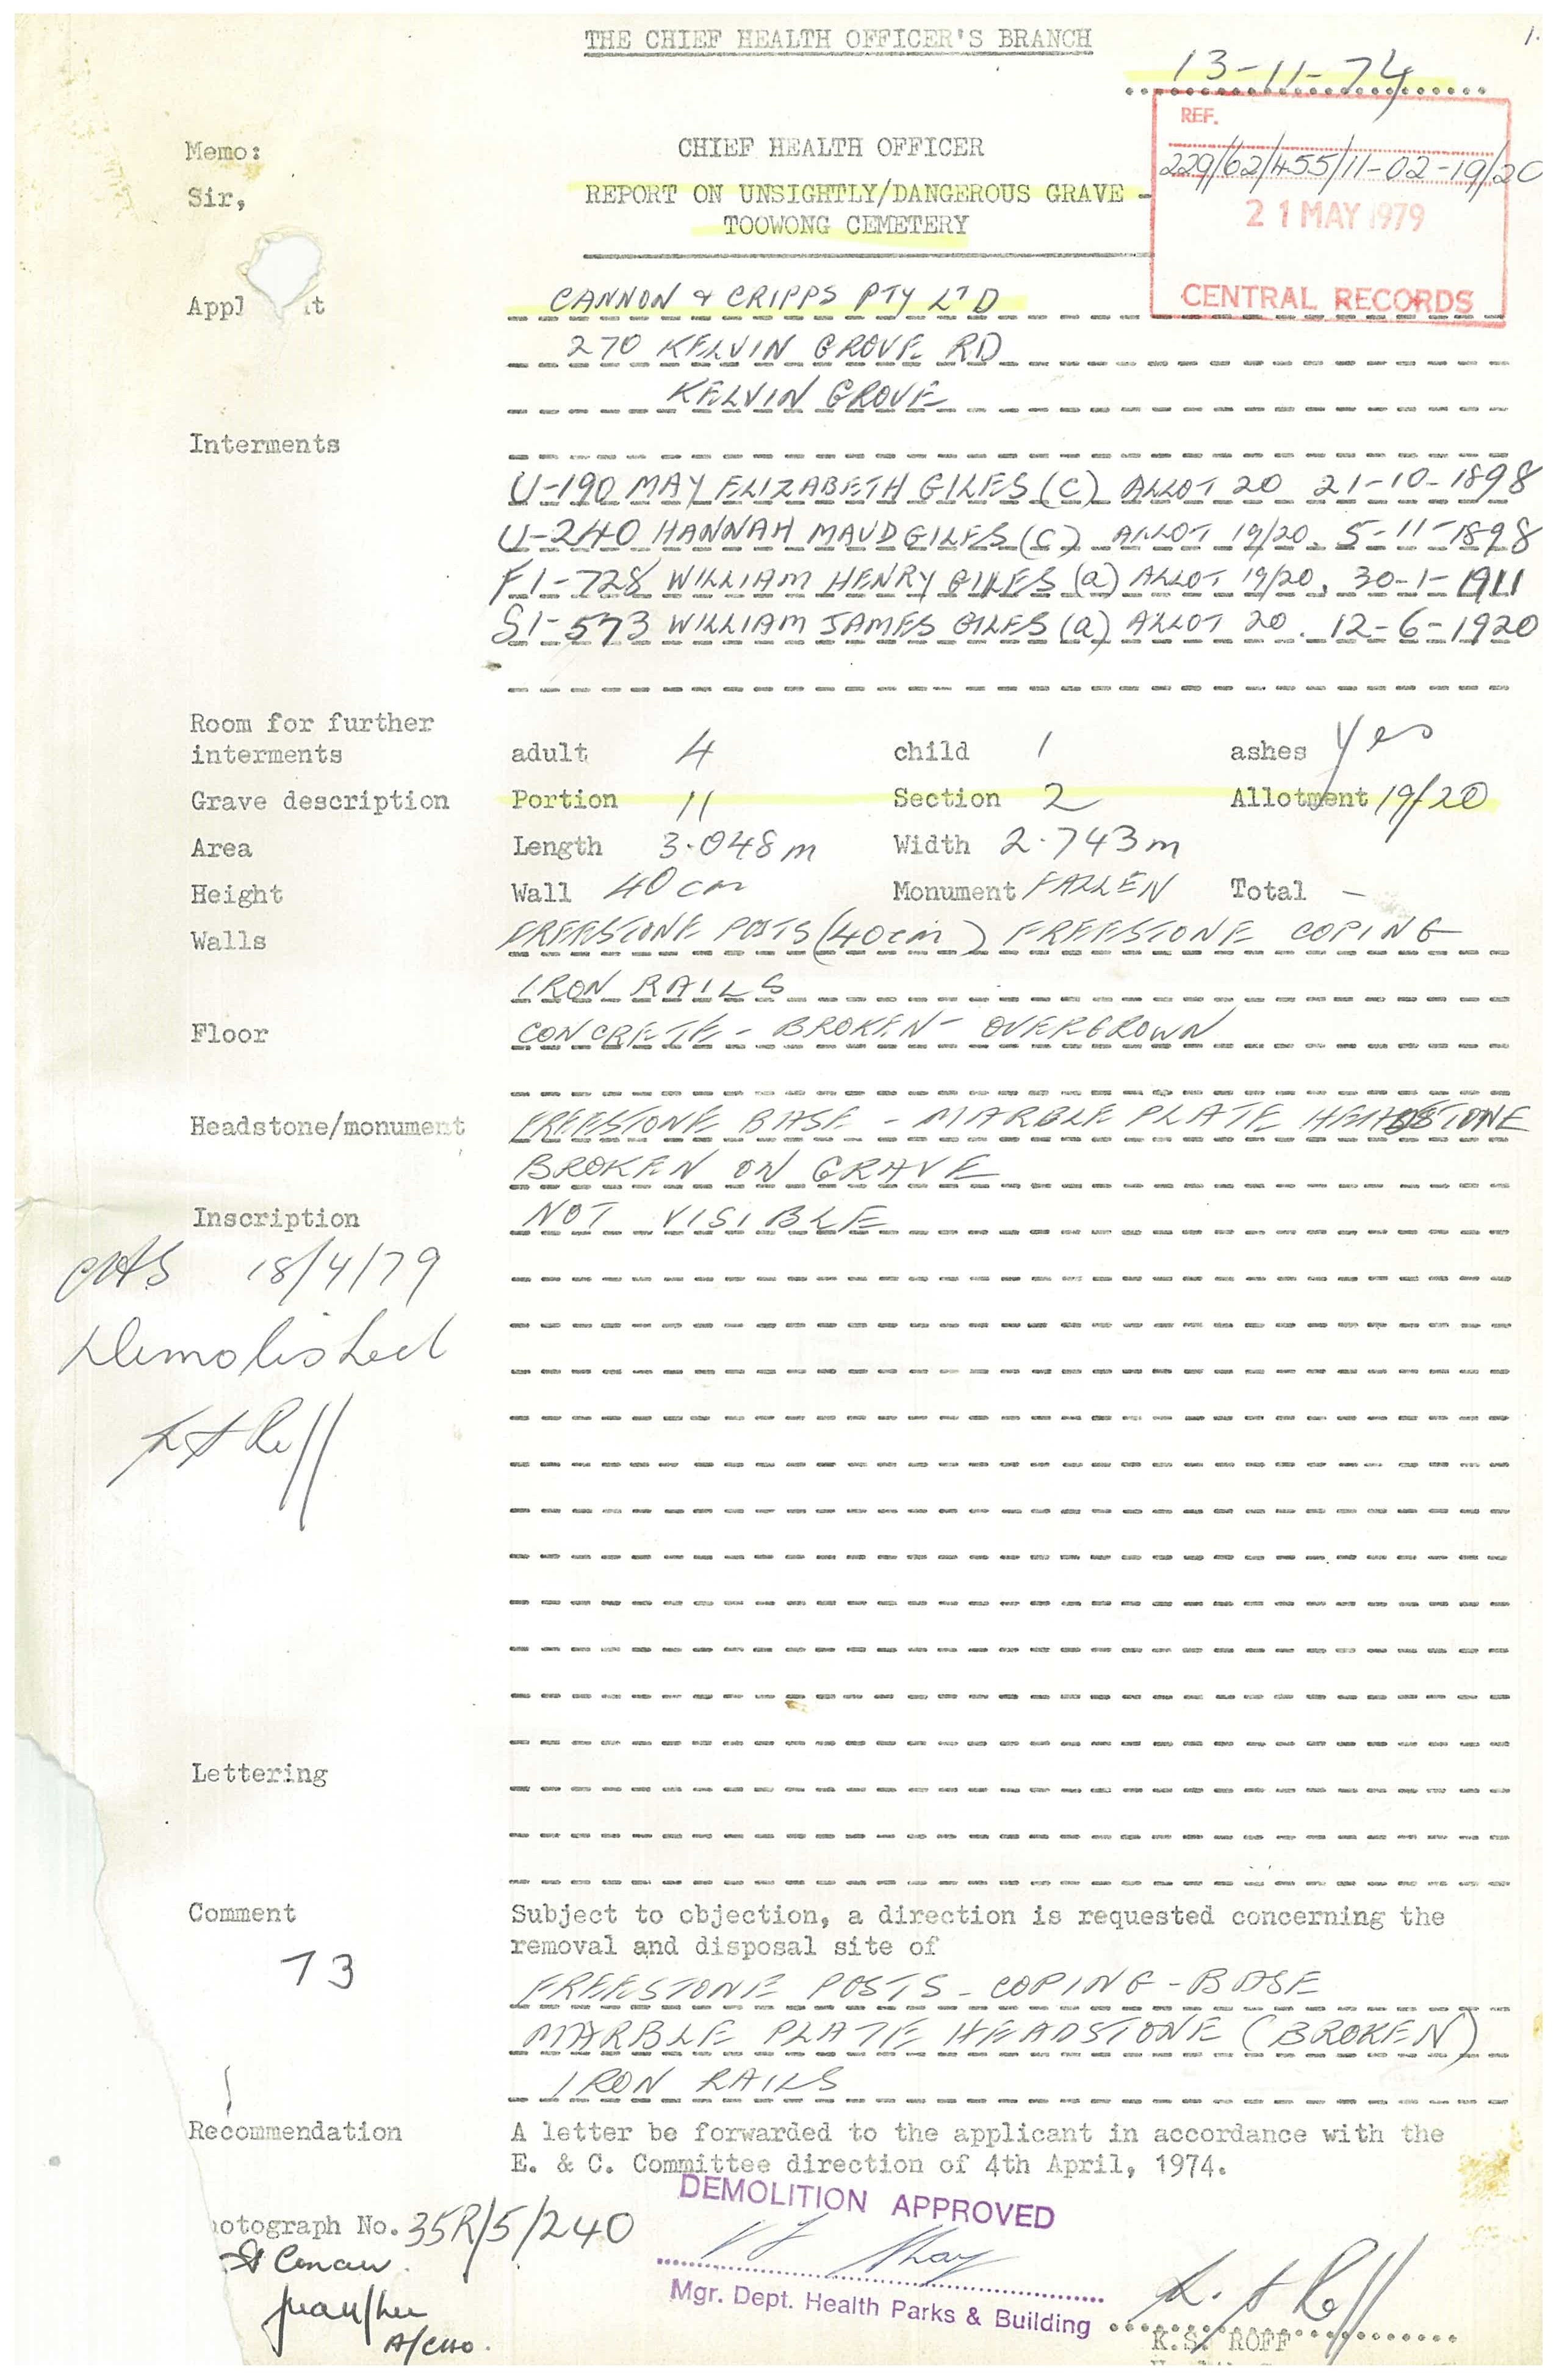 THE CHIEF HEALTH OFFICER'S BRANCH
1.
13-11-74
REF.
229/62/455/11-02-19/20
21 MAY 1979
CENTRAL RECORDS
Memo: CHIEF HEALTH OFFICER
Sir, REPORT ON UNSIGHTLY/DANGEROUS GRAVE -
TOOWONG CEMETERY
CANNON & CRIPPS PTY LTD
270 KELVIN GROVE RD
KELVIN GROVE
Interments
U-190 MAY ELIZABETH GILES (C) ALLOT 20 21-10-1898
U-240 HANNAH MAUD GILES (C) ALLOT 19/20. 5-11-1898
F1-728 WILLIAM HENRY GILES (a) ALLOT 19/20. 30-1-1911
S1-573 WILLIAM JAMES GILES (a) ALLOT 20. 12-6-1920
Room for further
interments adult 4 child 1 ashes Yes
Grave description Portion 11 Section 2 Allotment 19/20
Area Length 3.048m Width 2.743m
Height Wall 40cm Monument FALLEN Total -
Walls FREESTONE POSTS (40cm) FREESTONE COPING
IRON RAILS
Floor CONCRETE - BROKEN - OVERGROWN
Headstone/monument FREESTONE BASE - MARBLE PLATE HEADSTONE
BROKEN ON GRAVE
Inscription NOT VISIBLE
18/4/79
Demolished
Lettering
Comment Subject to objection, a direction is requested concerning the
removal and disposal site of
73
FREESTONE POSTS - COPING - BASE
MARBLE PLATE HEADSTONE (BROKEN)
IRON RAILS
Recommendation A letter be forwarded to the applicant in accordance with the
E. & C. Committee direction of 4th April, 1974.
DEMOLITION APPROVED
hotograph No. 35R/5/240
Mgr. Dept. Health Parks & Building
A/CHO.
K.S. ROFF